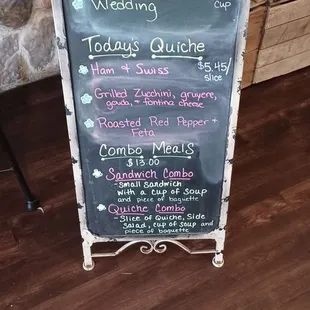 Wedding
cup
Today's Quiche
Ham & Swiss
$5.45/
slice
Grilled Zucchini, gruyere,
gouda, & fontina cheese
Roasted Red Pepper +
Feta
Combo Meals
$13.00
Sandwich Combo
- Small Sandwich
with a cup of soup
and piece of baguette
Quiche Combo
- Slice of Quiche, Side
Salad, cup of soup and
piece of baguette